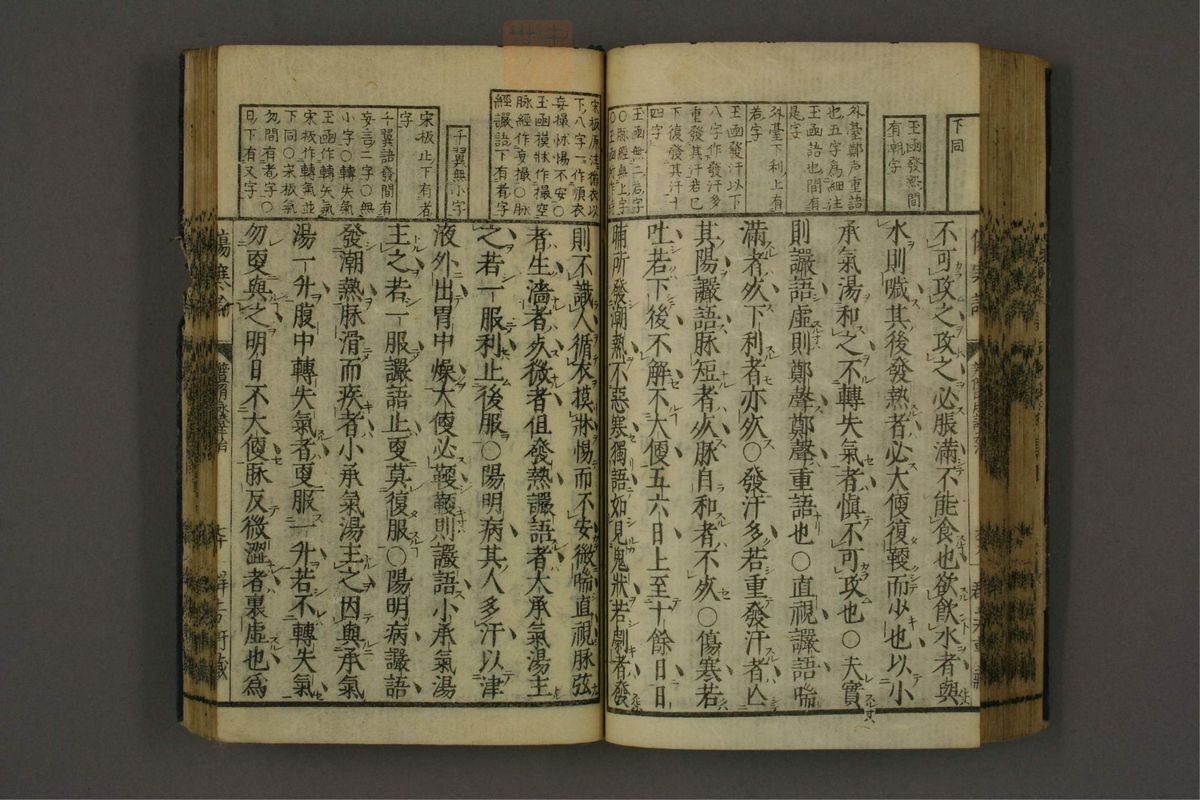 下同
玉函發熱間
有潮字
外臺鄭声重語
也五字為細注
玉函語也間有
是字
外臺下利上有
若字
玉函發汗以下
八字作發汗多
重發其汗若已
下復發其汗十
四字
玉函無二若字
〇脉經無上字
不可攻之攻之必脹滿不能食也欲飲水者與
水則噦其後發熱者必大便復鞕而少也以小
承氣湯和之不轉失氣者慎不可攻也〇夫實
則讝語虛則鄭聲鄭聲重語也〇直視讝語喘
滿者死下利者亦死〇發汗多若重發汗者亡
其陽讝語脉短者死脉自和者不死〇傷寒若
吐若下後不解不大便五六日上至十餘日日
晡所發潮熱不惡寒獨語如見鬼狀若劇者發
宋板原注循衣以
下八字一作順衣
妄撮怵惕不安〇
玉函摸牀作撮空
脉經作妄撮〇脉
經讝語下有者字
千翼無小字
宋板止下有者
字
千翼語發間有
妄言二字〇無
小字〇轉失氣
玉函作轉矢氣
宋板作轉氣並
下同〇宋板氣
勿間有者字〇
日下有又字
則不識人循衣摸牀惕而不安微喘直視脉弦
者生濇者死微者但發熱讝語者大承氣湯主
之若一服利止後服〇陽明病其人多汗以津
液外出胃中燥大便必鞕鞕則讝語小承氣湯
主之若一服讝語止更莫復服〇陽明病讝語
發潮熱脉滑而疾者小承氣湯主之因與承氣
湯一升腹中轉失氣者更服一升若不轉失氣
勿更與之明日不大便脉反微澀者裏虛也為
傷寒論